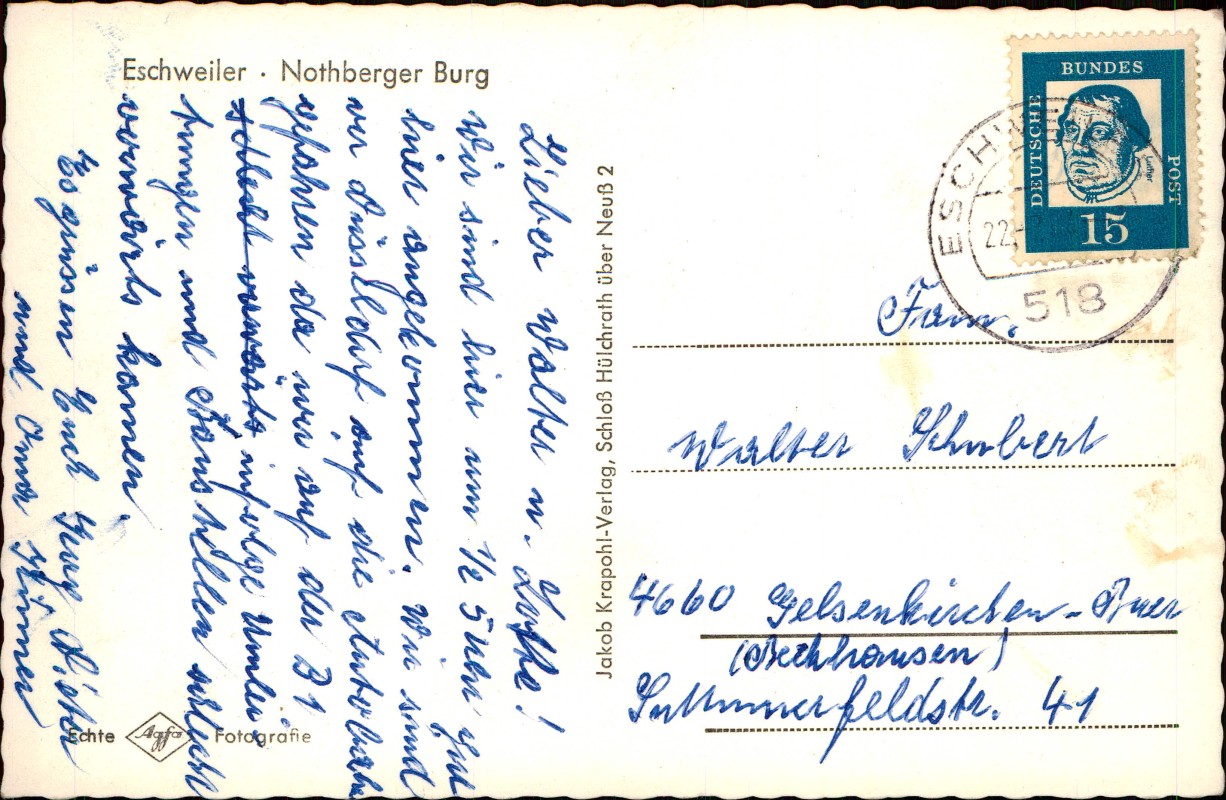 Eschweiler · Nothberger Burg
Lieber Walter u.
Wir sind hier um ½ 5 Uhr gut
hier angekommen. Wir sind
vor Düsseldorf auf die Autobahn
gefahren da wir auf der B1
schlecht vorwärts infolge Umlei-
tungen und Baustellen schlecht
vorwärts kamen.
Es grüssen Euch
und Oma
Echte Agfa Fotografie
Jakob Krapohl-Verlag, Schloß Hülchrath über Neuß 2
DEUTSCHE BUNDES POST
Luther
15
ESCHWE
22
518
Fam.
Walter Schubert
4660 Gelsenkirchen-Buer
(Beckhausen)
41